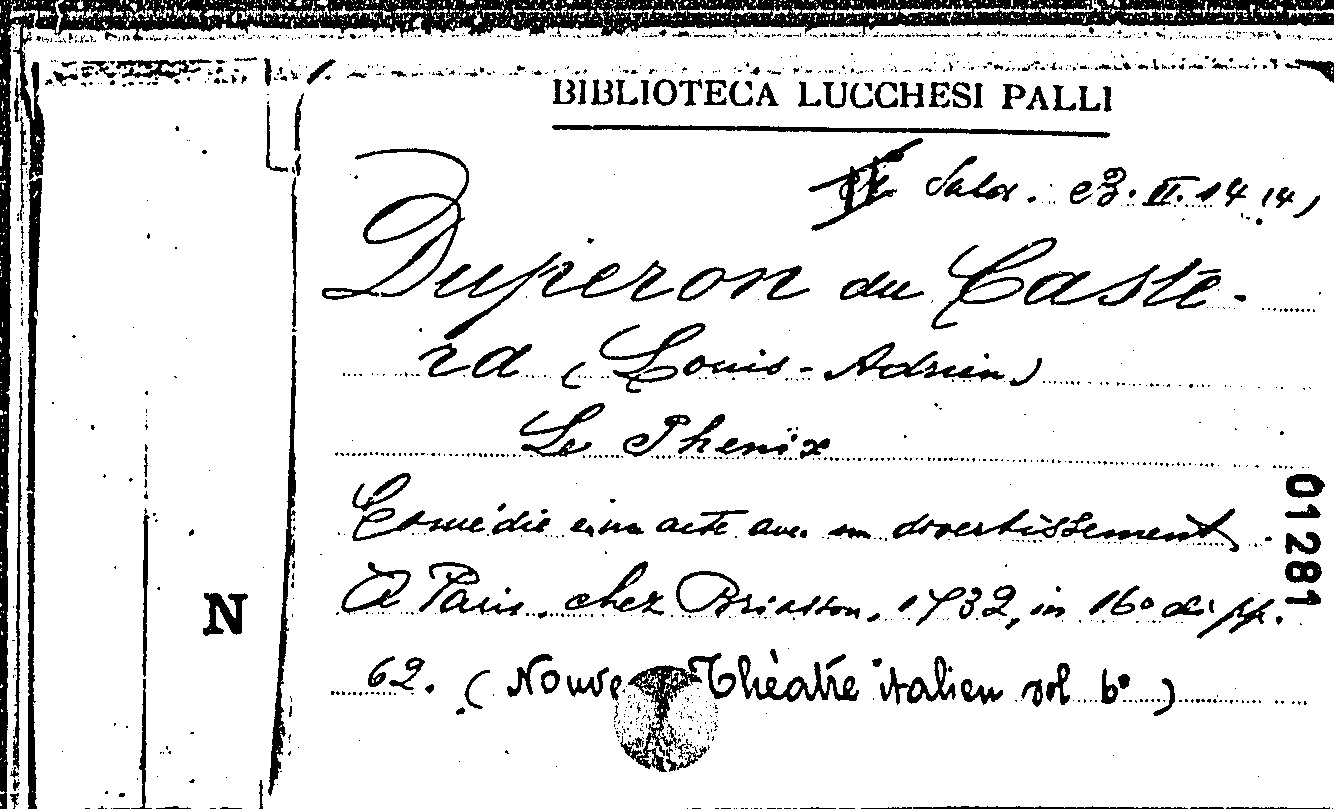 BIBLIOTECA LUCCHESI PALLI
Sala. C3. II. 14 (4)
Duperon du Caste-
ra (Louis-Adrien)
Le Phenix
Comédie en un acte avec un divertissement.
A Paris, chez Briasson, 1732, in 16° di pp.
62. (Nouve Théatre italien vol 6°)
01281
N